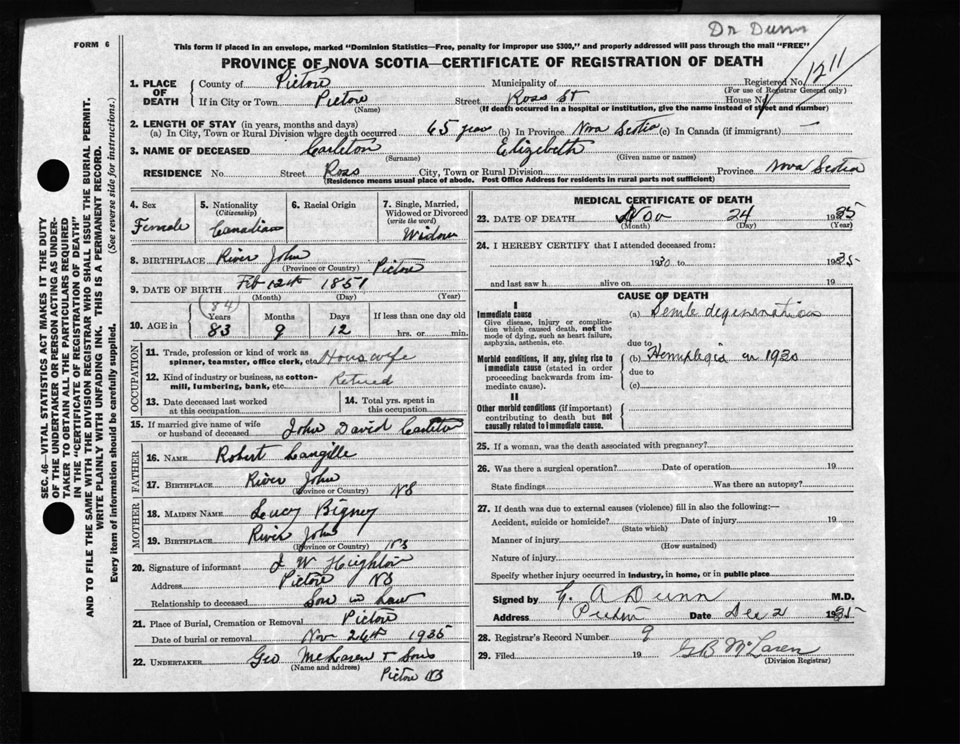 Dr Dunn
FORM 6
This form if placed in an envelope, marked "Dominion Statistics—Free, penalty for improper use $300," and properly addressed will pass through the mail "FREE"
PROVINCE OF NOVA SCOTIA—CERTIFICATE OF REGISTRATION OF DEATH
1211
1. PLACE OF DEATH County of Pictou Municipality of Registered No.
(For use of Registrar General only)
If in City or Town Pictou Street Ross St House No.
(Name) (If death occurred in a hospital or institution, give the name instead of street and number)
2. LENGTH OF STAY (in years, months and days)
(a) In City, Town or Rural Division where death occurred 65 years (b) In Province Nova Scotia (c) In Canada (if immigrant) —
3. NAME OF DECEASED Carleton Elizebeth
(Surname) (Given name or names)
RESIDENCE No. Street Ross City, Town or Rural Division Province Nova Scotia
(Residence means usual place of abode. Post Office Address for residents in rural parts not sufficient)
4. Sex Female
5. Nationality (Citizenship) Canadian
6. Racial Origin
7. Single, Married, Widowed or Divorced (write the word) Widow
8. BIRTHPLACE River John Pictou
(Province or Country)
9. DATE OF BIRTH Feb 12th 1851
(Month) (Day) (Year)
(84)
10. AGE in Years 83 Months 9 Days 12 If less than one day old
hrs. or min.
OCCUPATION
11. Trade, profession or kind of work as spinner, teamster, office clerk, etc. Housewife
12. Kind of industry or business, as cotton-mill, lumbering, bank, etc. Retired
13. Date deceased last worked at this occupation
14. Total yrs. spent in this occupation
15. If married give name of wife or husband of deceased John David Carleton
FATHER
16. NAME Robert Langille
17. BIRTHPLACE River John NS
(Province or Country)
MOTHER
18. MAIDEN NAME Lucy Bigney
19. BIRTHPLACE River John NS
(Province or Country)
20. Signature of informant J W Heighton
Address Pictou NS
Relationship to deceased Son in Law
21. Place of Burial, Cremation or Removal Pictou
Date of burial or removal Nov 26th 1935
22. UNDERTAKER Geo McLaren & Sons
(Name and address)
Pictou NS
MEDICAL CERTIFICATE OF DEATH
23. DATE OF DEATH Nov 24 1935
(Month) (Day) (Year)
24. I HEREBY CERTIFY that I attended deceased from:
1930 to 1935
and last saw h alive on 19
CAUSE OF DEATH
I
Immediate cause
Give disease, injury or complication which caused death, not the mode of dying, such as heart failure, asphyxia, asthenia, etc.
(a) Senile degeneration
due to
Morbid conditions, if any, giving rise to immediate cause (stated in order proceeding backwards from immediate cause).
(b) Hemiplegia in 1930
due to
(c)
II
Other morbid conditions (if important) contributing to death but not causally related to immediate cause.
25. If a woman, was the death associated with pregnancy?
26. Was there a surgical operation? Date of operation 19
State findings Was there an autopsy?
27. If death was due to external causes (violence) fill in also the following:—
Accident, suicide or homicide? Date of injury 19
(State which)
Manner of injury
(How sustained)
Nature of injury
Specify whether injury occurred in industry, in home, or in public place
Signed by G. A Dunn M.D.
Address Pictou Date Dec 2 1935
28. Registrar's Record Number 9
29. Filed 19 G B McLaren
(Division Registrar)
SEC. 46—VITAL STATISTICS ACT MAKES IT THE DUTY
OF THE UNDERTAKER OR PERSON ACTING AS UNDER-
TAKER TO OBTAIN ALL THE PARTICULARS REQUIRED
IN THE "CERTIFICATE OF REGISTRATION OF DEATH"
AND TO FILE THE SAME WITH THE DIVISION REGISTRAR WHO SHALL ISSUE THE BURIAL PERMIT.
WRITE PLAINLY WITH UNFADING INK. THIS IS A PERMANENT RECORD.
Every item of information should be carefully supplied. (See reverse side for instructions.)